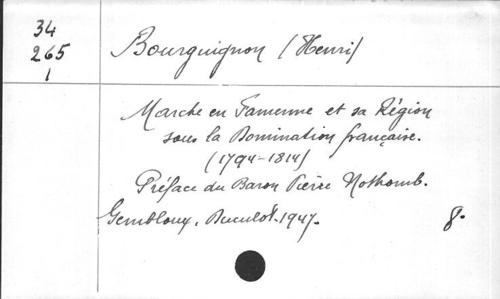 34
265
1
Bourguignon (Henri)
Marche en Famenne et sa Région
sous la Domination française.
(1794-1814)
Préface du Baron Pierre Nothomb.
Gembloux, Duculot. 1947.
8°